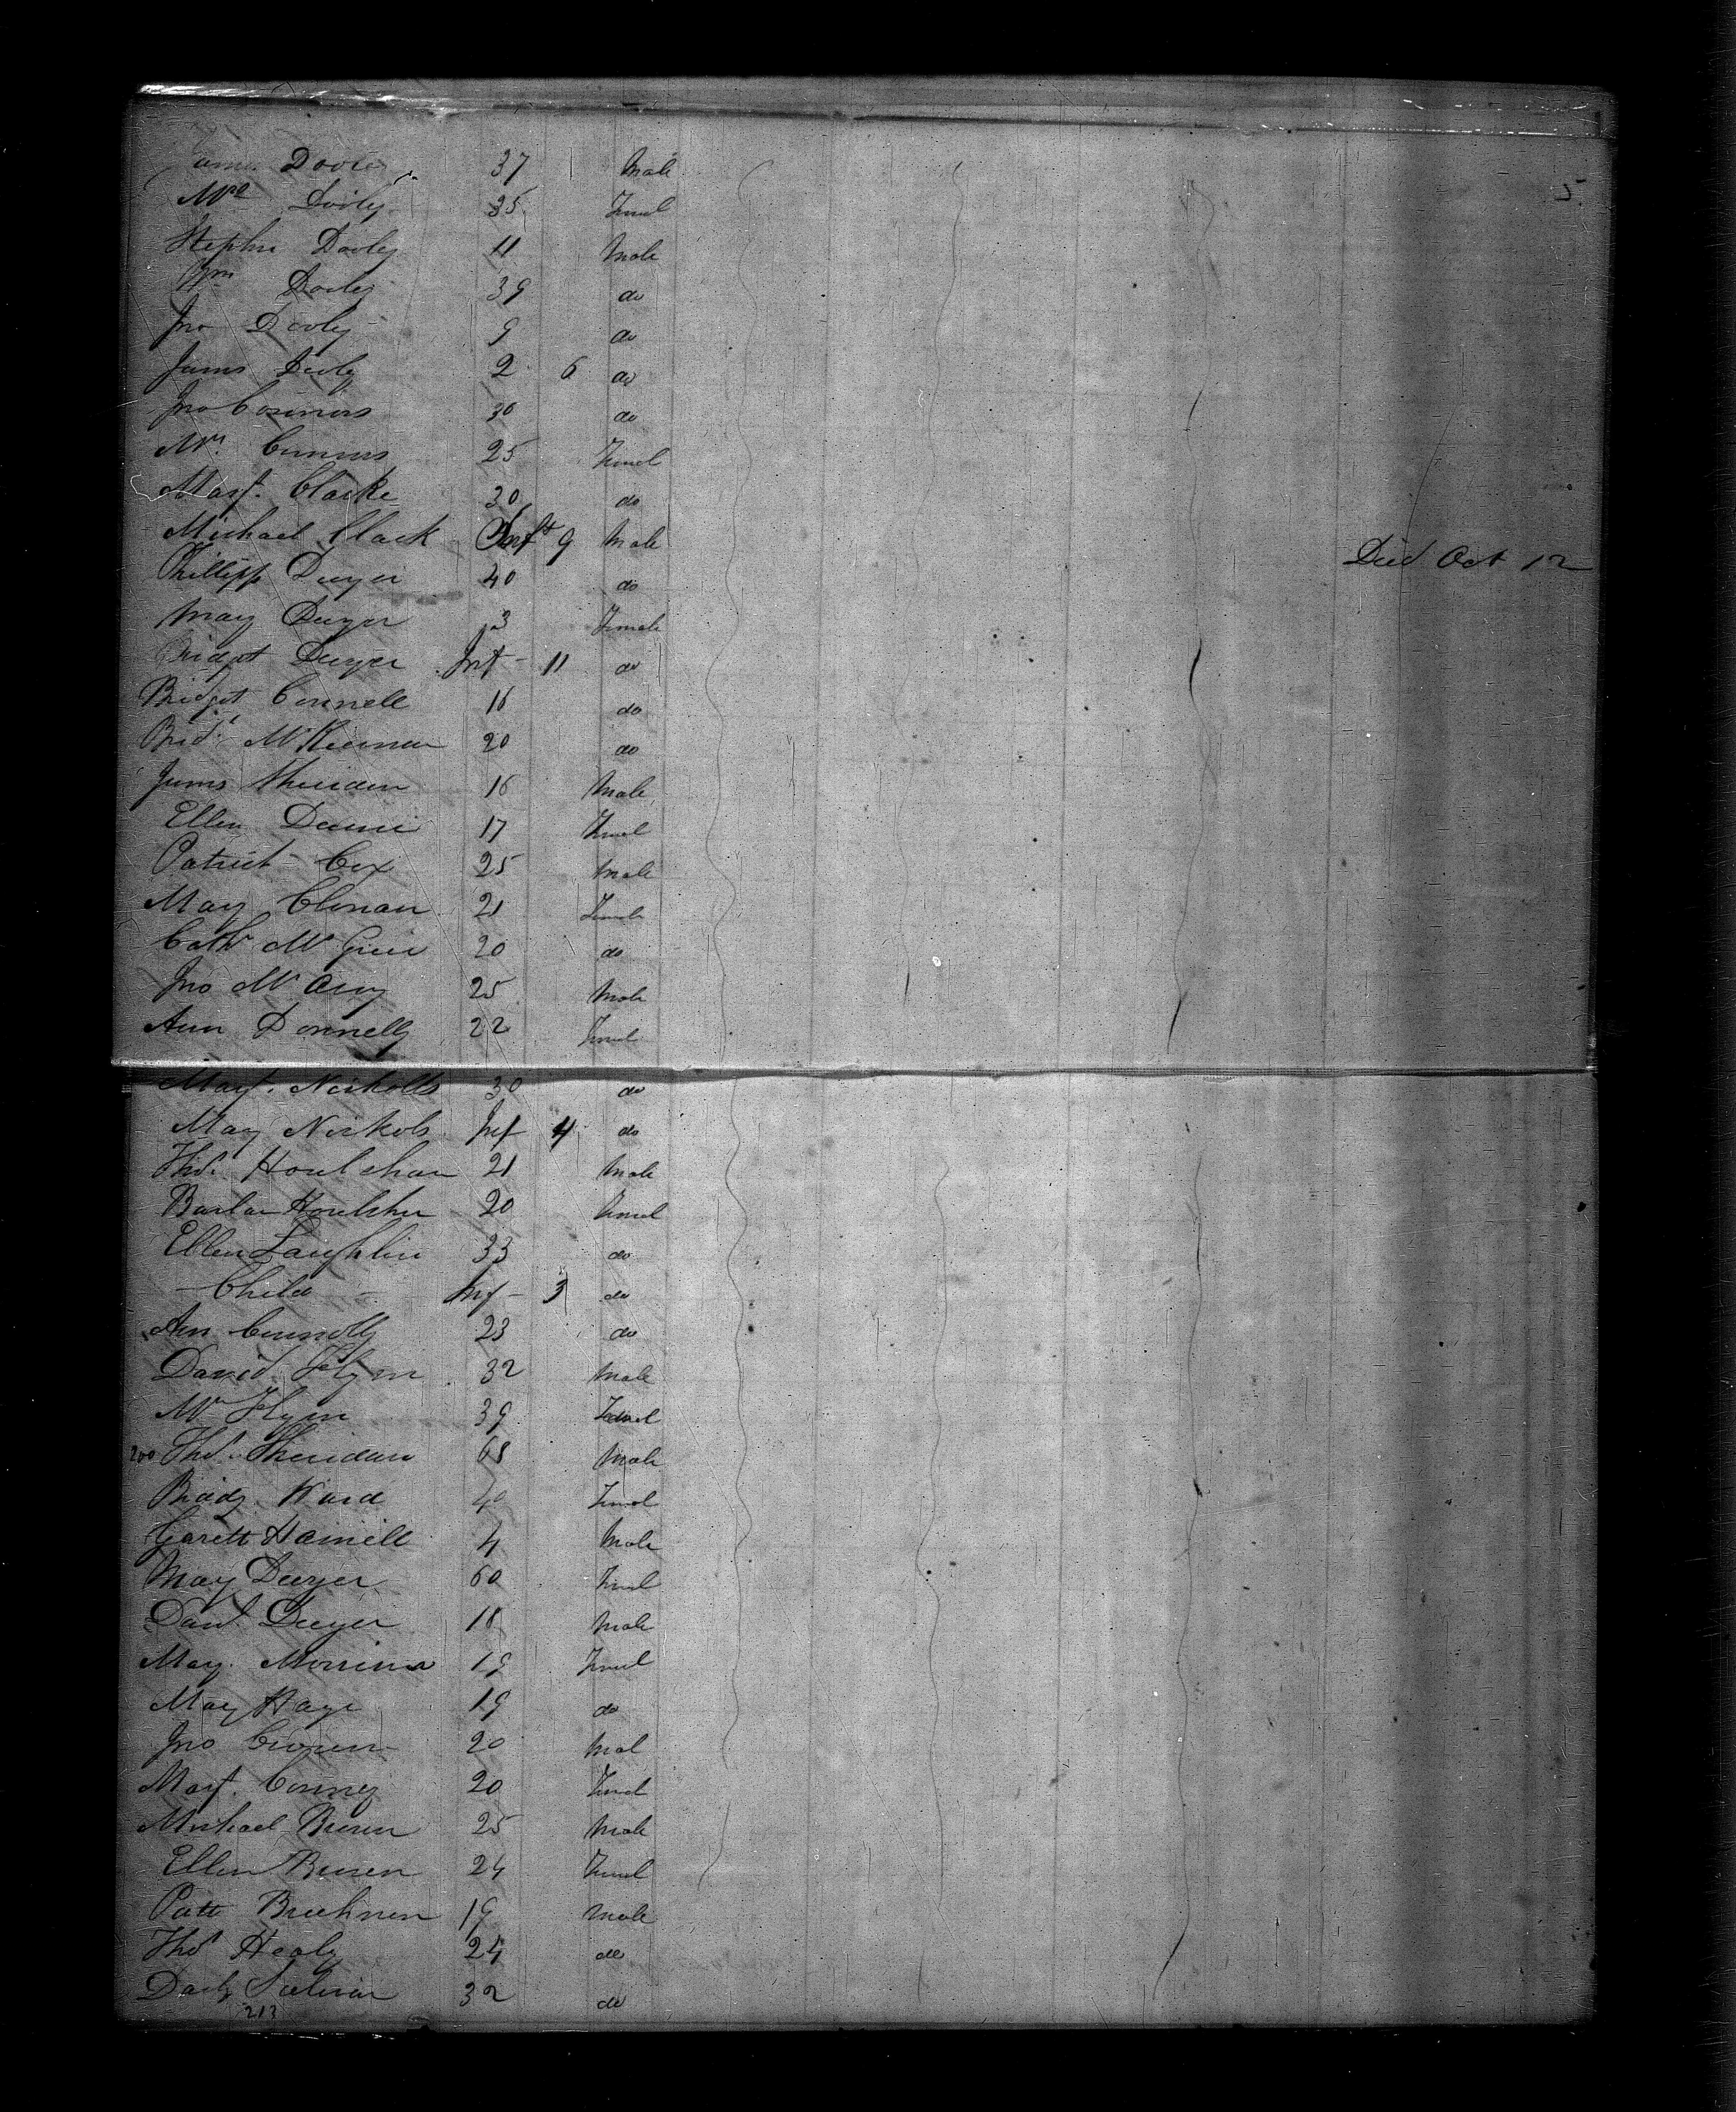 5
James Dooley 37 Male
Mrs Dooley 35 Femal
Stephn Dooley 11 Male
Wm Dooley 39 do
Jno Dooley 9 do
James Dooley 2 6 do
Jno Connors 30 do
Mrs. Connors 25 Femal
Margt. Clarke 30 do
Michael Clark Inft 9 Male Died Oct 12
Phillipp Dwyer 40 do
Mary Dwyer 3 Female
Bridget Dwyer Inf - 11 do
Bridget Connell 16 do
Brid. McKiernan 20 do
James Sheridan 16 Male
Ellen 17 Femal
Patrick Cox 25 Male
Mary Clonan 21 Female
Cath 20 do
Jno 25 Male
Ann Donnelly 22 Femal
Margt. Nickolls 30 do
Mary Nickols Inf 4 do
Thos. Houlihan 21 Male
20 Femal
Ellen Laughlin 33 do
- Child - Inf - 3 do
Ann Connolly 23 do
David Flynn 32 Male
Mrs Flynn 39 Femal
200 Thos. Sheridan 68 Male
Bridg. Ward 40 Femal
Garett Hamill 4 Male
Mary Dwyer 60 Femal
Danl. Dwyer 18 Male
Mary 19 Femal
Mary Haye 19 do
Jno 20 Mal
Margt. 20 Femal
Michael 25 Male
Ellen 24 Femal
Patt 19 Male
Thos Healy 24 do
32 do
213